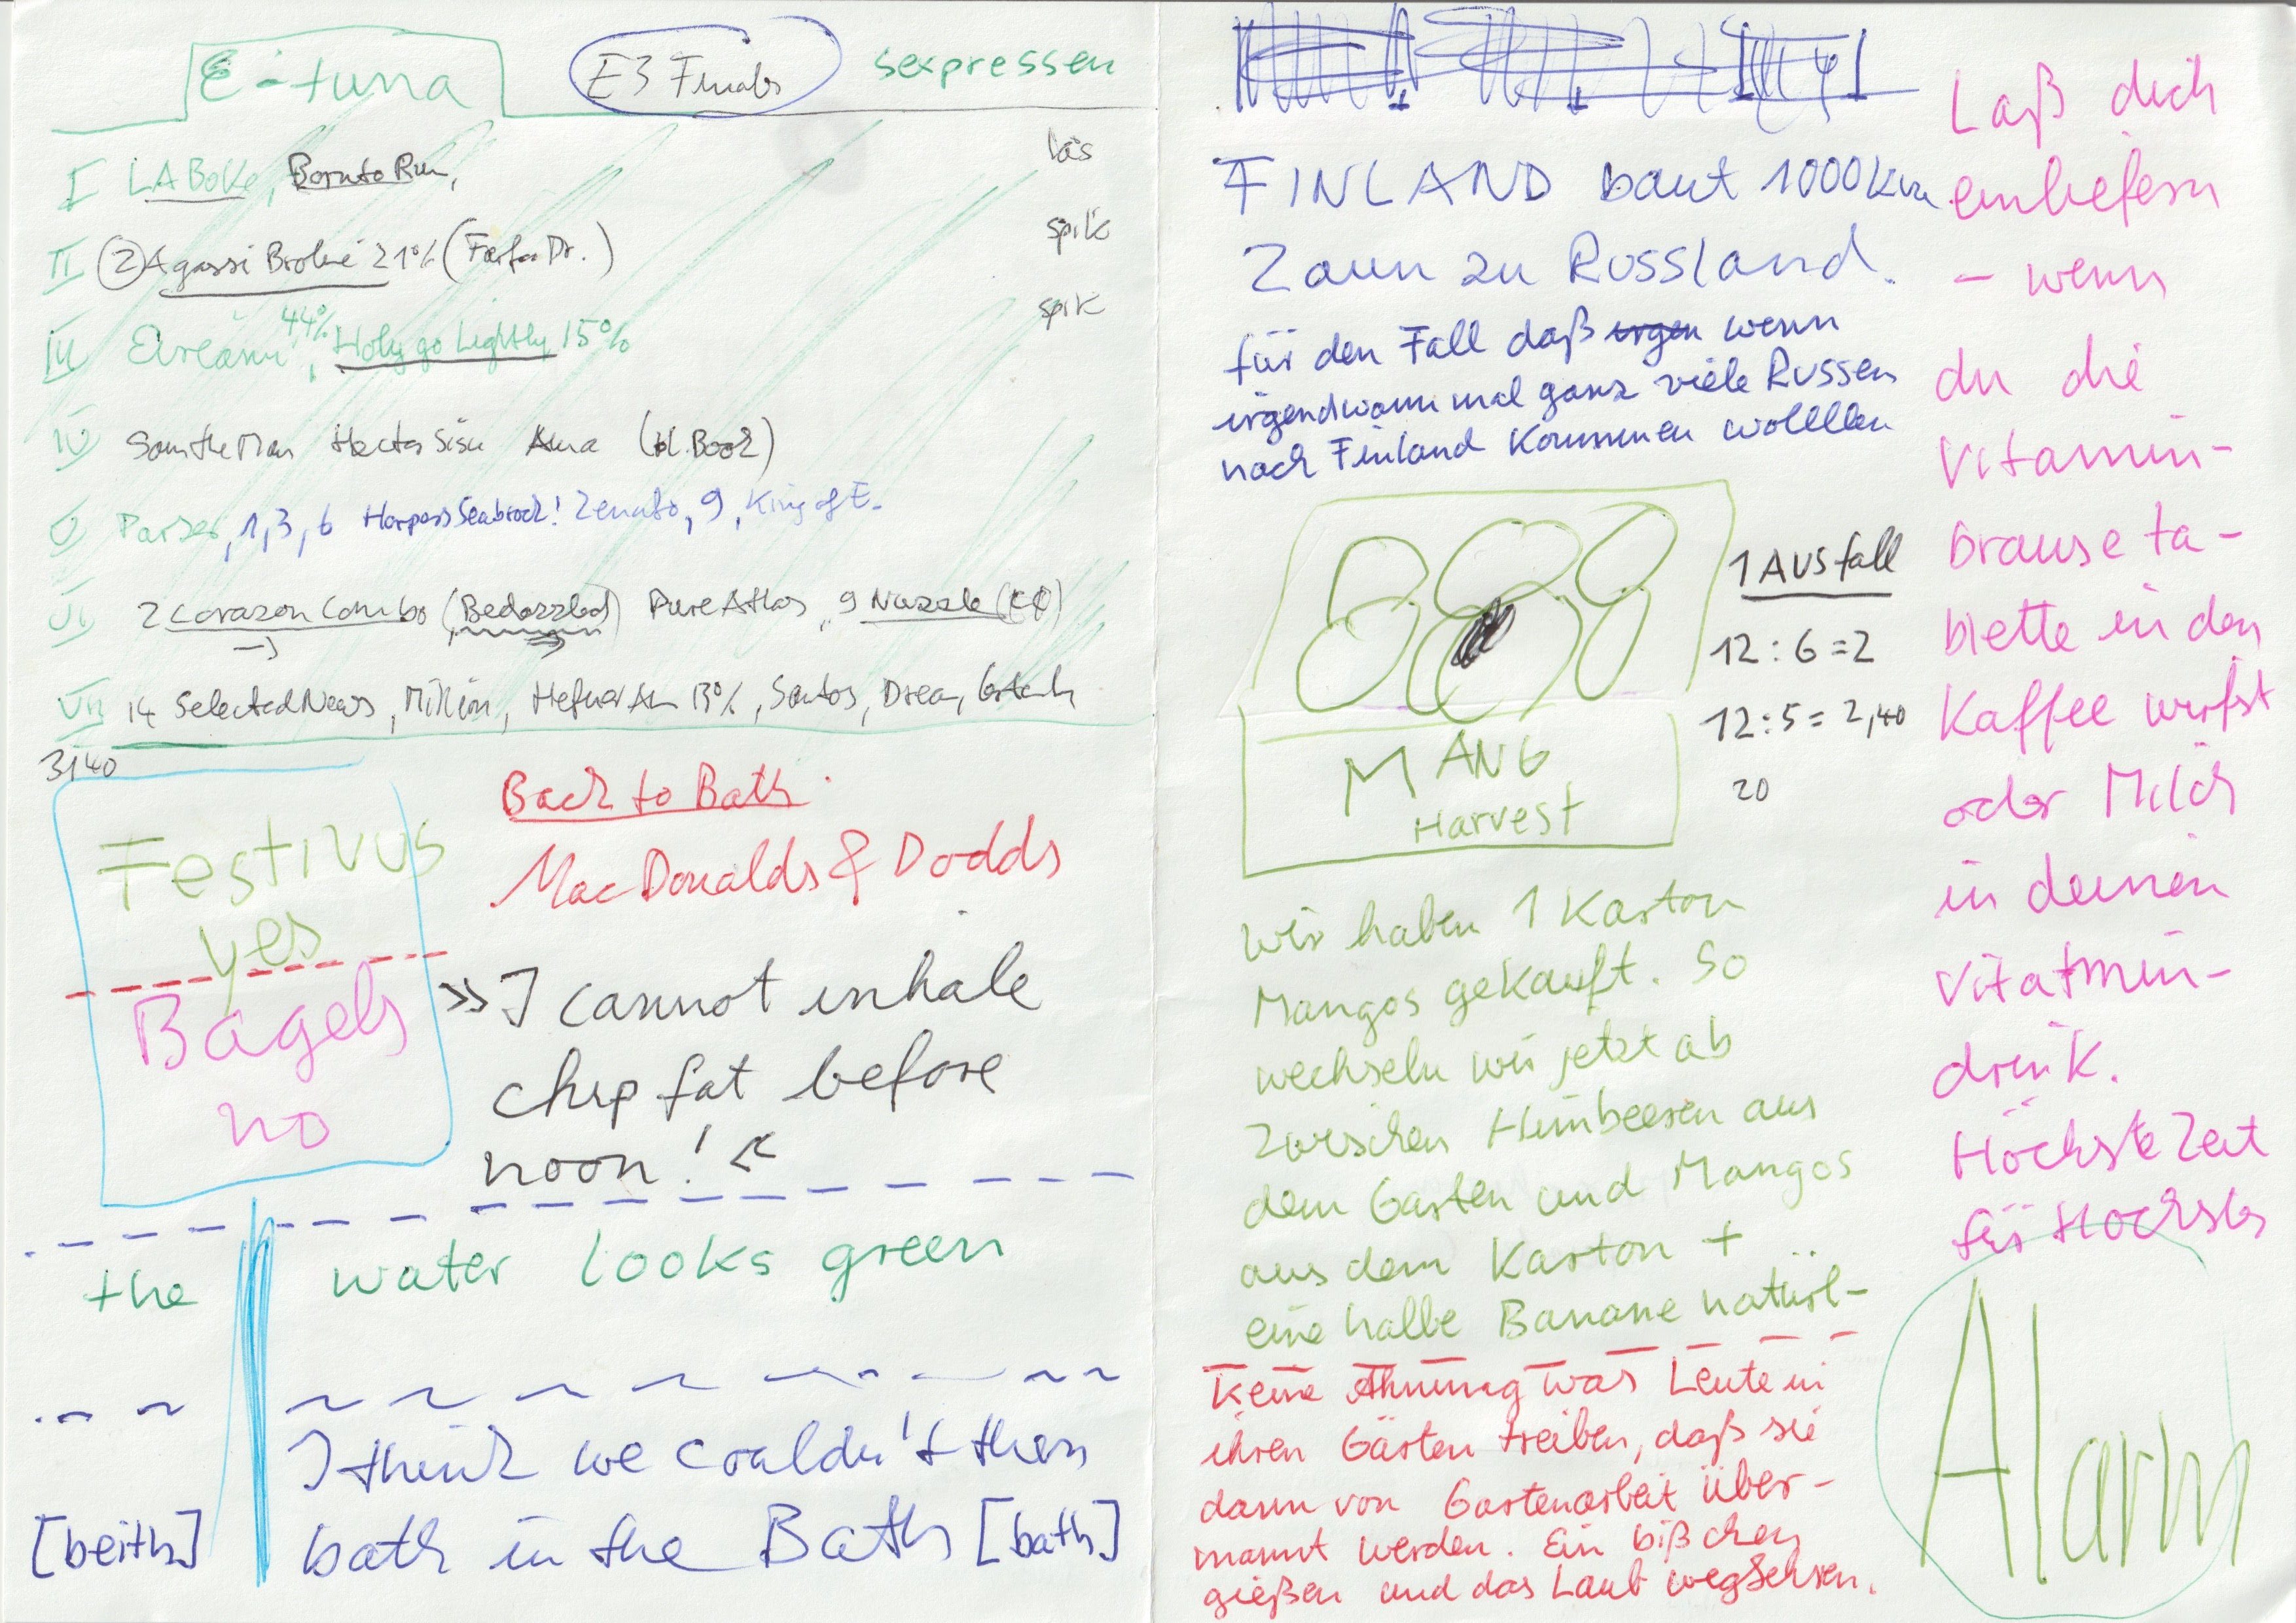 E-tuna
E3 Finals
sexpressen
I LA Boke, Born to Run,
läs
II ② Agassi Broline 21% (Farfar Dr.)
spik
III 44%, Holy go Lightly 15%
spik
IV Sam the Man Hector Sisu Alma (bl. Book)
V Parser, 1, 3, 6 Harpers Seabrook! Zenato, 9, King of E.
VI 2 Corazon Combo (Bedazzled) Pure Atlas, 9 Nuzzle (€€)
VII 14 Selected News, Million, Hefner AM 13%, Santos, Dream,
3,40
Festivus
yes
Bagels
no
Back to Bath.
MacDonalds & Dodds
»I cannot inhale
chip fat before
noon!«
the water looks green
I think we couldn't then
[beith] bath in the Bath [bath]
FINLAND baut 1000 km
Zaun zu Russland.
für den Fall daß irgen wenn
irgendwann mal ganz viele Russen
nach Finland kommmen wolllen
1 AUSfall
12 : 6 = 2
12 : 5 = 2,40
20
MANG
Harvest
Wir haben 1 Karton
Mangos gekauft. So
wechseln wir jetzt ab
zwischen Himbeeren aus
dem Garten und Mangos
aus dem Karton +
eine halbe Banane natürl-
Keine Ahnung was Leute in
ihren Gärten treiben, daß sie
dann von Gartenarbeit über-
mannt werden. Ein bißchen
gießen und das Laub wegkehren.
Laß dich
einliefern
- wenn
du die
Vitamin-
brauseta-
blette in den
Kaffee wirfst
oder Milch
in deinen
Vitatmin-
drink.
Höchste Zeit
für Höchstes
Alarm